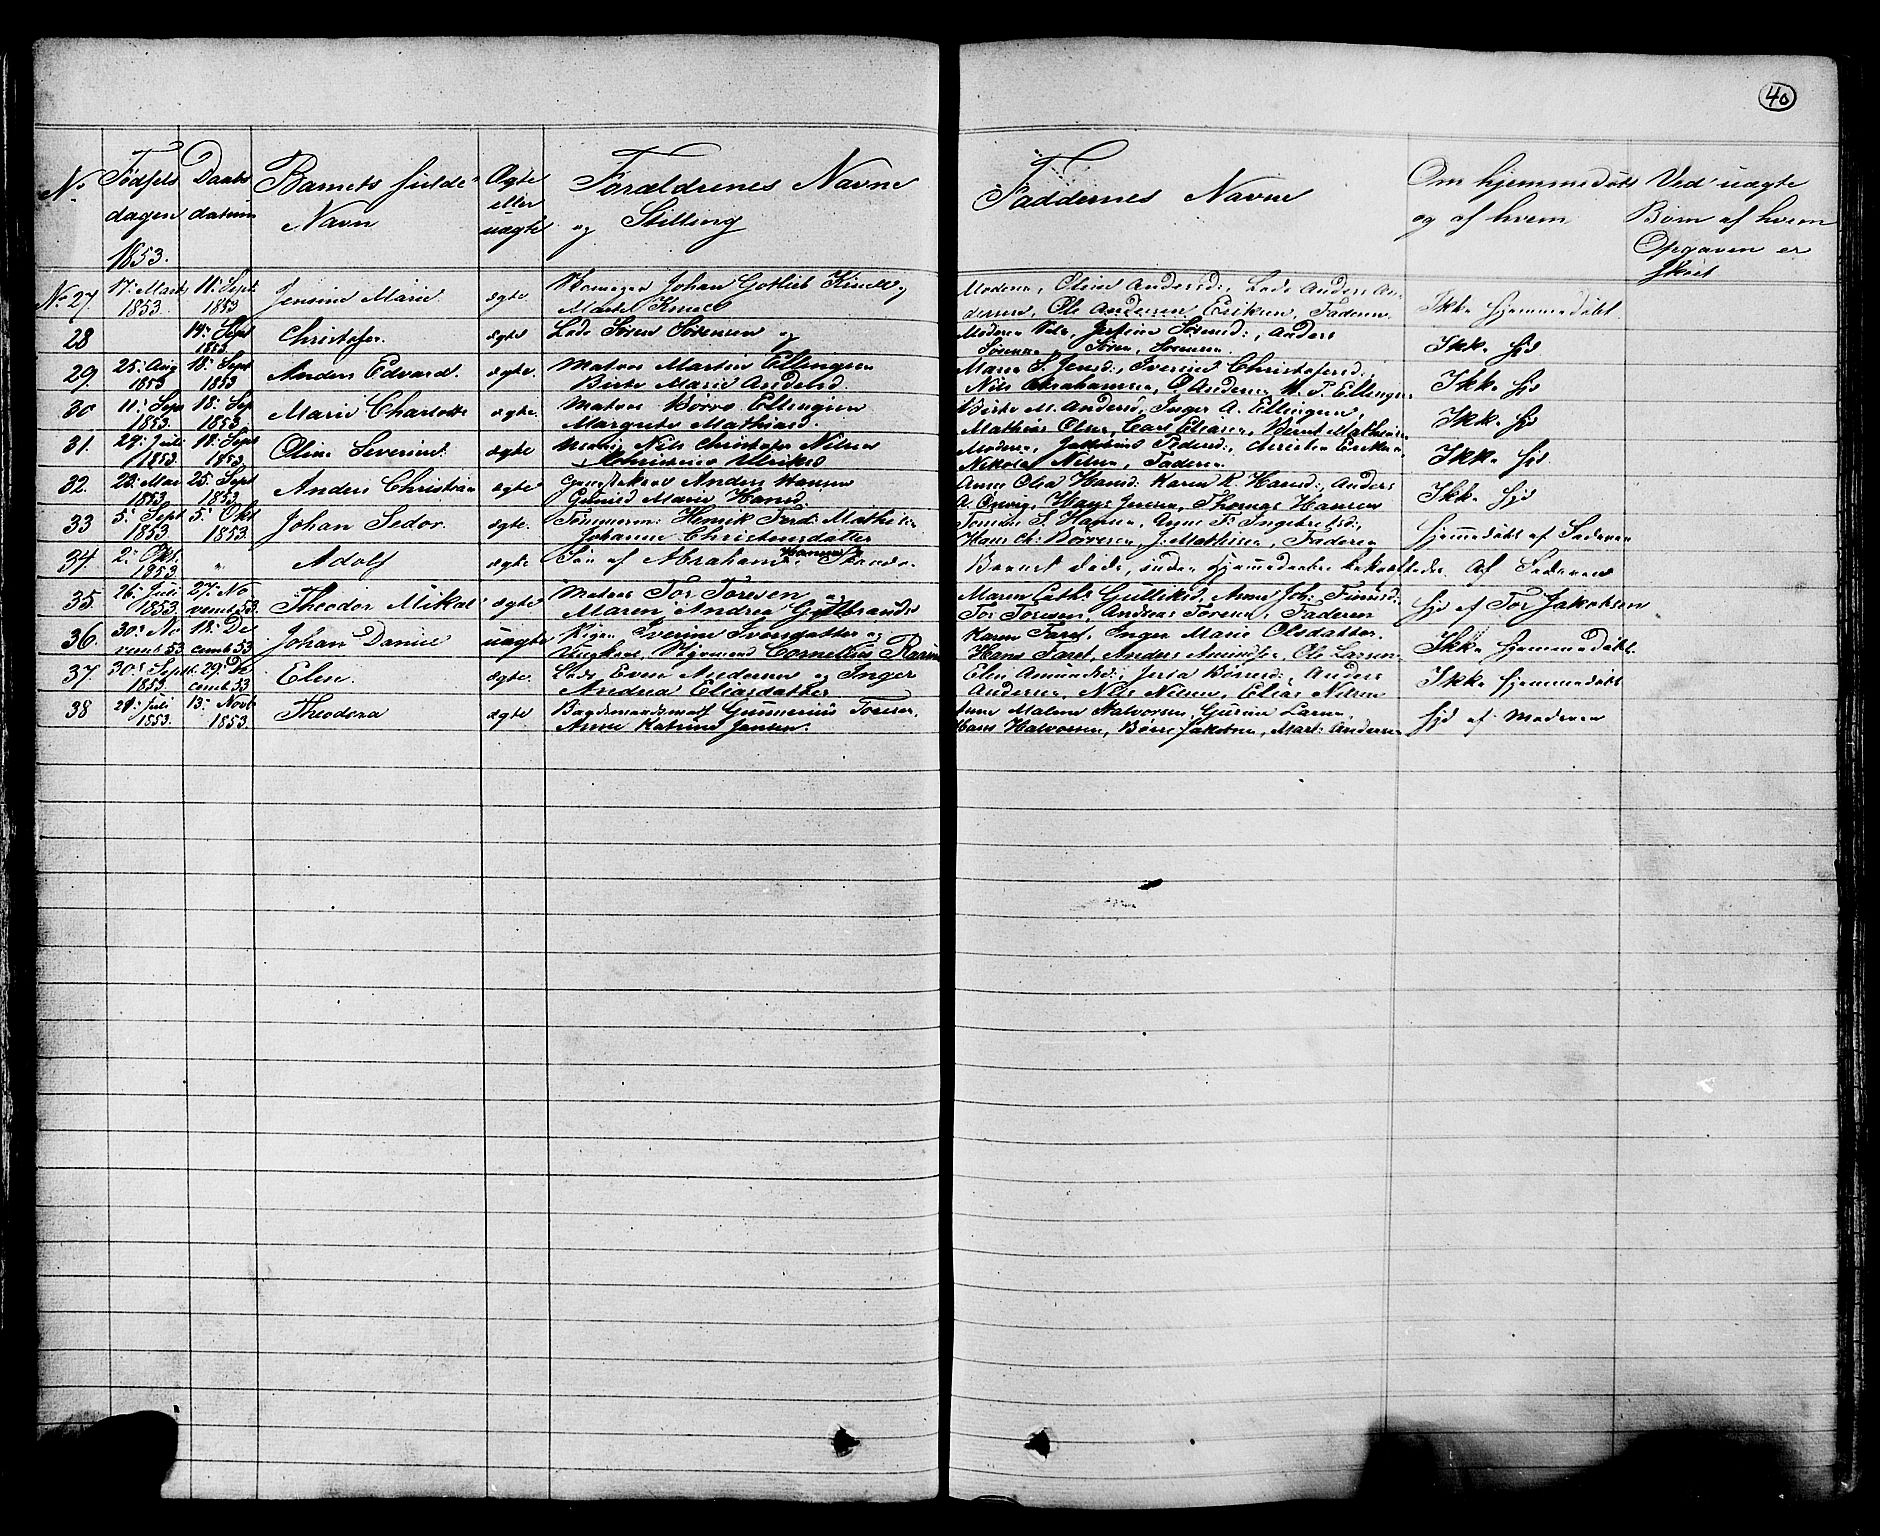 40
No Fødsels dagen 1853. Daabs datum Barnets fulde Navn Ægte eller uægte Forældrenes Navne og Stilling Faddernes Navne Om hjemmedøbt og af hvem Ved uægte Børn af hvem Opgaven er skeet
No 27. 17. Marts 1853. 11. Sept 1853 Jensine Marie ægte Johan Gotlieb og
Moderen, Oline Andersd:, Lods Anders Andersen, Ole Andersen, Eriksen, Faderen Ikke hjemmedøbt
28 14. Sept 1853. Christofer. ægte Lods Søren Sørensen og
Moderen, Sørensd:, Anders Sørensen, Søren Sørensen. Ikke hjd
29. 25. Aug 1853 18. Sept 1853 Anders Edvard. ægte. Matros Martin Ellingsen
Birte Marie Andersd.
Maren S. Jensd:, Iverine Christofersd:,
Nils Abrahamsen, O. Andersen, M. T. Ellingsen Ikke hjd
30 11. Sep 1853. 18. Sep 1853 Marie Charlotte ægte. Matros Børre Ellingsen
Margrete Mathiasd.
Birte M. Andersd, Inger A. Ellingsen,
Mathias Olsen, Carl Eliasen, Bernt Mathiesen Ikke hjd
31. 29. Juli 1853. 18. Sept 1853. Oline Severine. ægte Nils Christofer Nilsen
Moderen, Eriksen,
Nikolai Nilsen, Faderen Ikke hjd.
32. 23. Mai 1853 25. Sept 1853 Anders Christian ægte Anders Hansen
Gunild Marie Hansd
Anne Olea Hansd: Karen K. Hansd:, Anders
Hans Jensen, Thomas Hansen Ikke hjd
33 5. Sept 1853 5. Okt 1853. Johan Sedor. ægte. Tømmerm: Henrik Ferd: Mathisen
Johanne Christensdatter
S. Hansen, F. Ingebretsd:,
Hans Ch: Børresen, J. Mathisen, Faderen Hjemmedøbt af Faderen
34. 2. Okt. 1853. " Adolf ægte. Søn af Abraham Hansen
Barnet døde, inden Hjemmedaaben bekræftedes. Af Faderen
35. 26. Juli 1853. 27. November 53. Theodor Mikal ægte Matros Tor Toresen og
Maren Andrea Gulbrandsd
Maren Cath: Gulliksd, Anne Joh:
Tor Toresen, Andreas Toresen, Faderen hjd af Tor Jakobsen
36. 30. November 53 18. December 53 Johan Daniel uægte Pigen Iverine Ivarsdatter og
Ungkarl, Cornelius
Karen Faret, Inger Marie Olsdatter.
Hans Faret, Anders Amundsen, Ole Larsen Ikke hjemmedøbt.
37 30. Sept. 1853. 29. December 53 Elen. ægte. Lods Even Andersen og Inger
Andrea Eliasdatter
Elen Amundsd:, Berta Børresd:, Anders
Andersen, Nils Nilsen, Elias Nilsen Ikke hjemmedøbt
38 29. Juli 1853. 13. Novb 1853. Theodora ægte Gunnerius Toresen,
Anne Katrine Jansen.
Anne Malene Halvorsen, Gurine Larsen,
Hans Halvorsen, Børre Jakobsen, Mart: Andersen hjd af Moderen